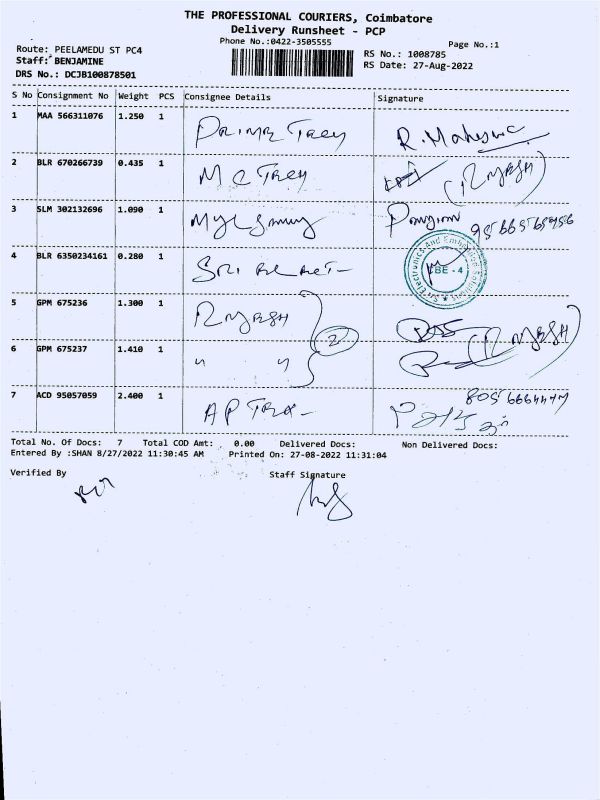 THE PROFESSIONAL COURIERS, Coimbatore
Delivery Runsheet - PCP
Phone No.:0422-3505555
Page No.:1
Route: PEELAMEDU ST PC4
Staff: BENJAMINE
DRS No.: DCJB100878501
RS No.: 1008785
RS Date: 27-Aug-2022
S No Consignment No Weight PCS Consignee Details Signature
1 MAA 566311076 1.250 1 R. Mahes
2 BLR 670266739 0.435 1 M C Trey
3 SLM 302132696 1.090 1
4 BLR 6350234161 0.280 1 SRI
CBE - 4
5 GPM 675236 1.300 1
2
6 GPM 675237 1.410 1 " "
7 ACD 95057059 2.400 1 AP
Total No. Of Docs: 7 Total COD Amt: 0.00 Delivered Docs: Non Delivered Docs:
Entered By :SHAN 8/27/2022 11:30:45 AM Printed On: 27-08-2022 11:31:04
Verified By Staff Signature